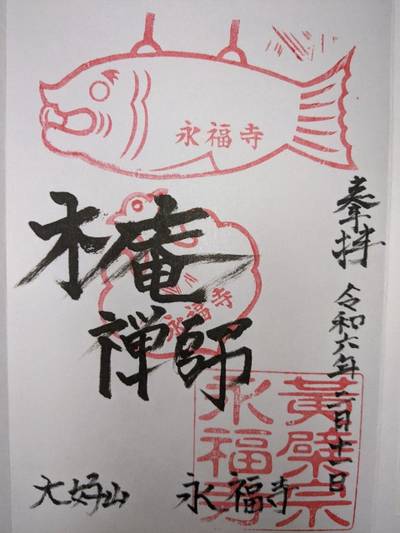 永福寺
奉拝 令和六年二月十一日
木庵
禅師
永福寺
黄檗宗
永福寺
大好山 永福寺